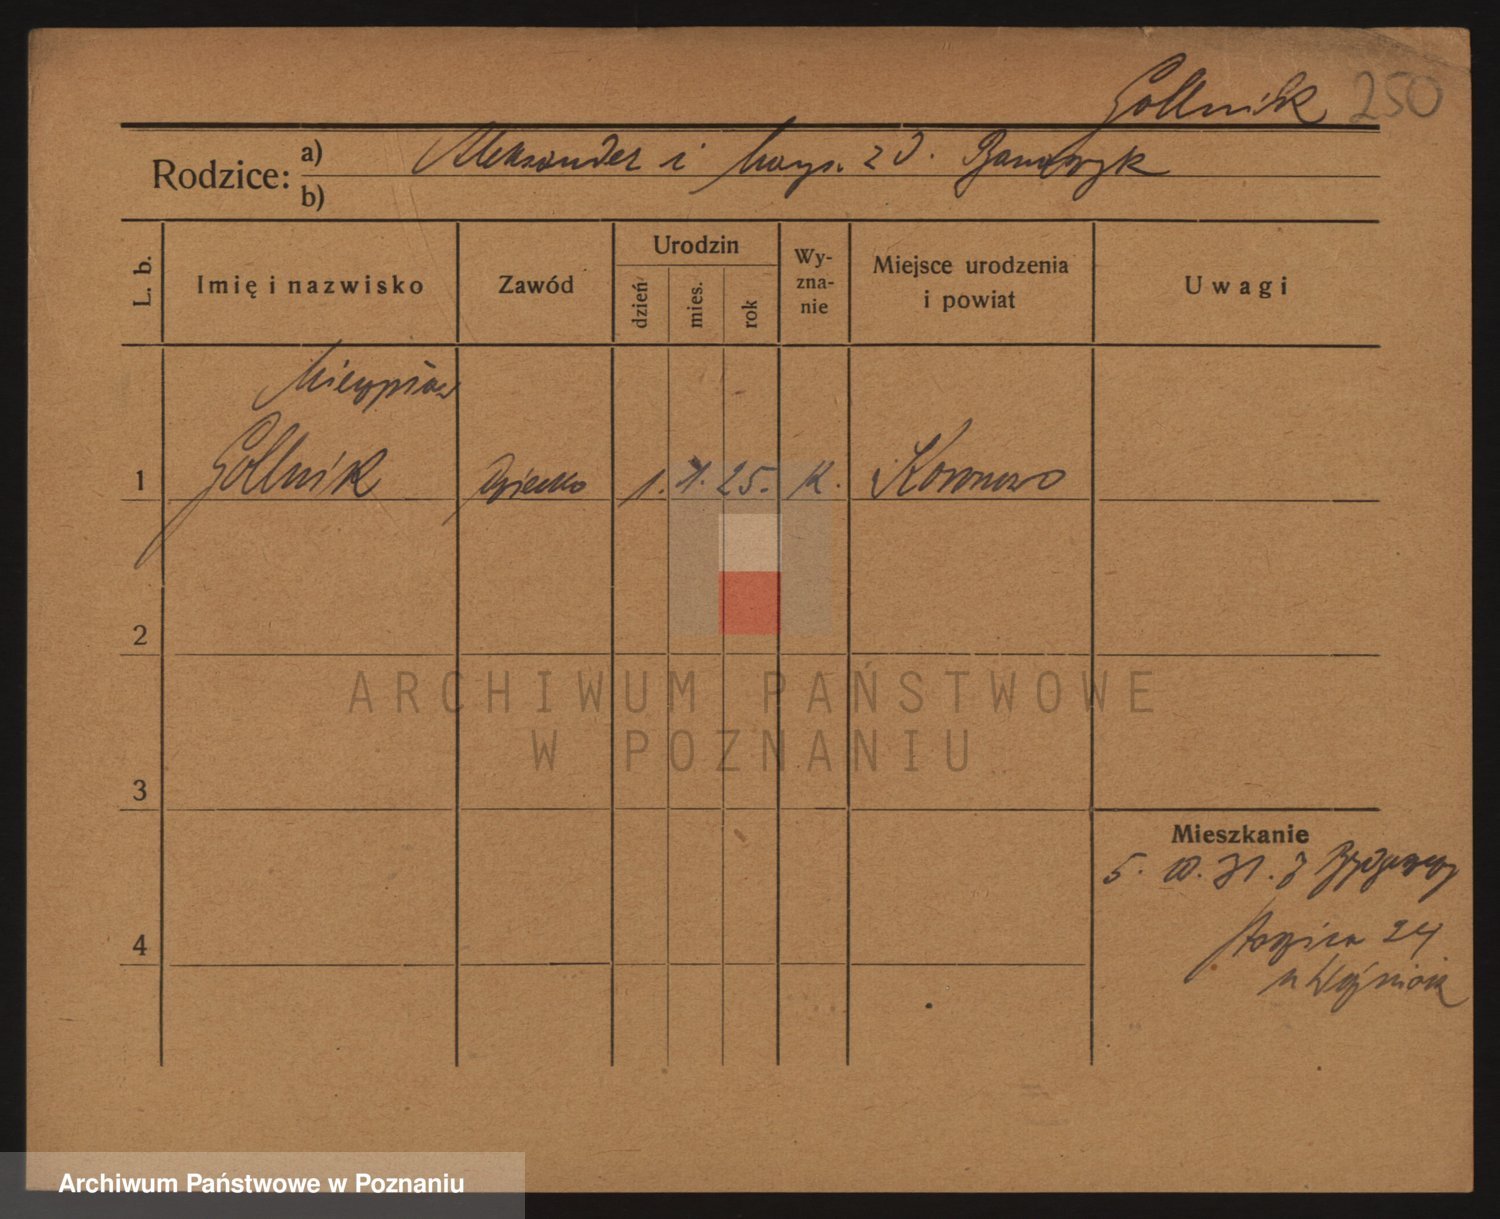 Gollnik 250
Rodzice: a) Aleksander i z d.
b)
L. b.
Imię i nazwisko
Zawód
Urodzin
dzień
mies.
rok
Wy-
zna-
nie
Miejsce urodzenia
i powiat
Uwagi
Mieczysław
1 Gollnik Dziecko 1. 1. 25. K. Koronowo
2
ARCHIWUM PAŃSTWOWE
W POZNANIU
3
Mieszkanie
5. 10. 31. z Bydgoszczy
24
u Woźniak
4
Archiwum Państwowe w Poznaniu